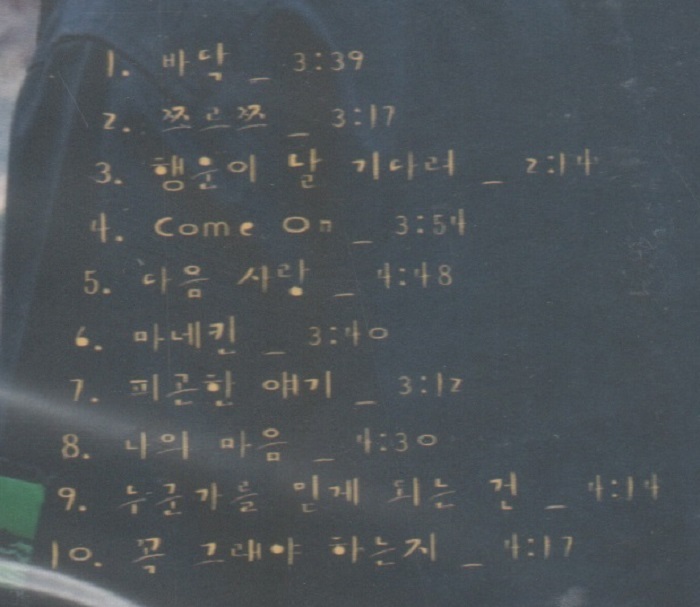 1. 바닥 _ 3:39
2. 쯔르쯔 _ 3:17
3. 행운이 날 기다려 _ 2:14
4. Come On _ 3:54
5. 다음 사랑 _ 4:48
6. 마네킨 _ 3:40
7. 피곤한 얘기 _ 3:12
8. 나의 마음 _ 4:30
9. 누군가를 믿게 되는 건 _ 4:14
10. 꼭 그래야 하는지 _ 4:17